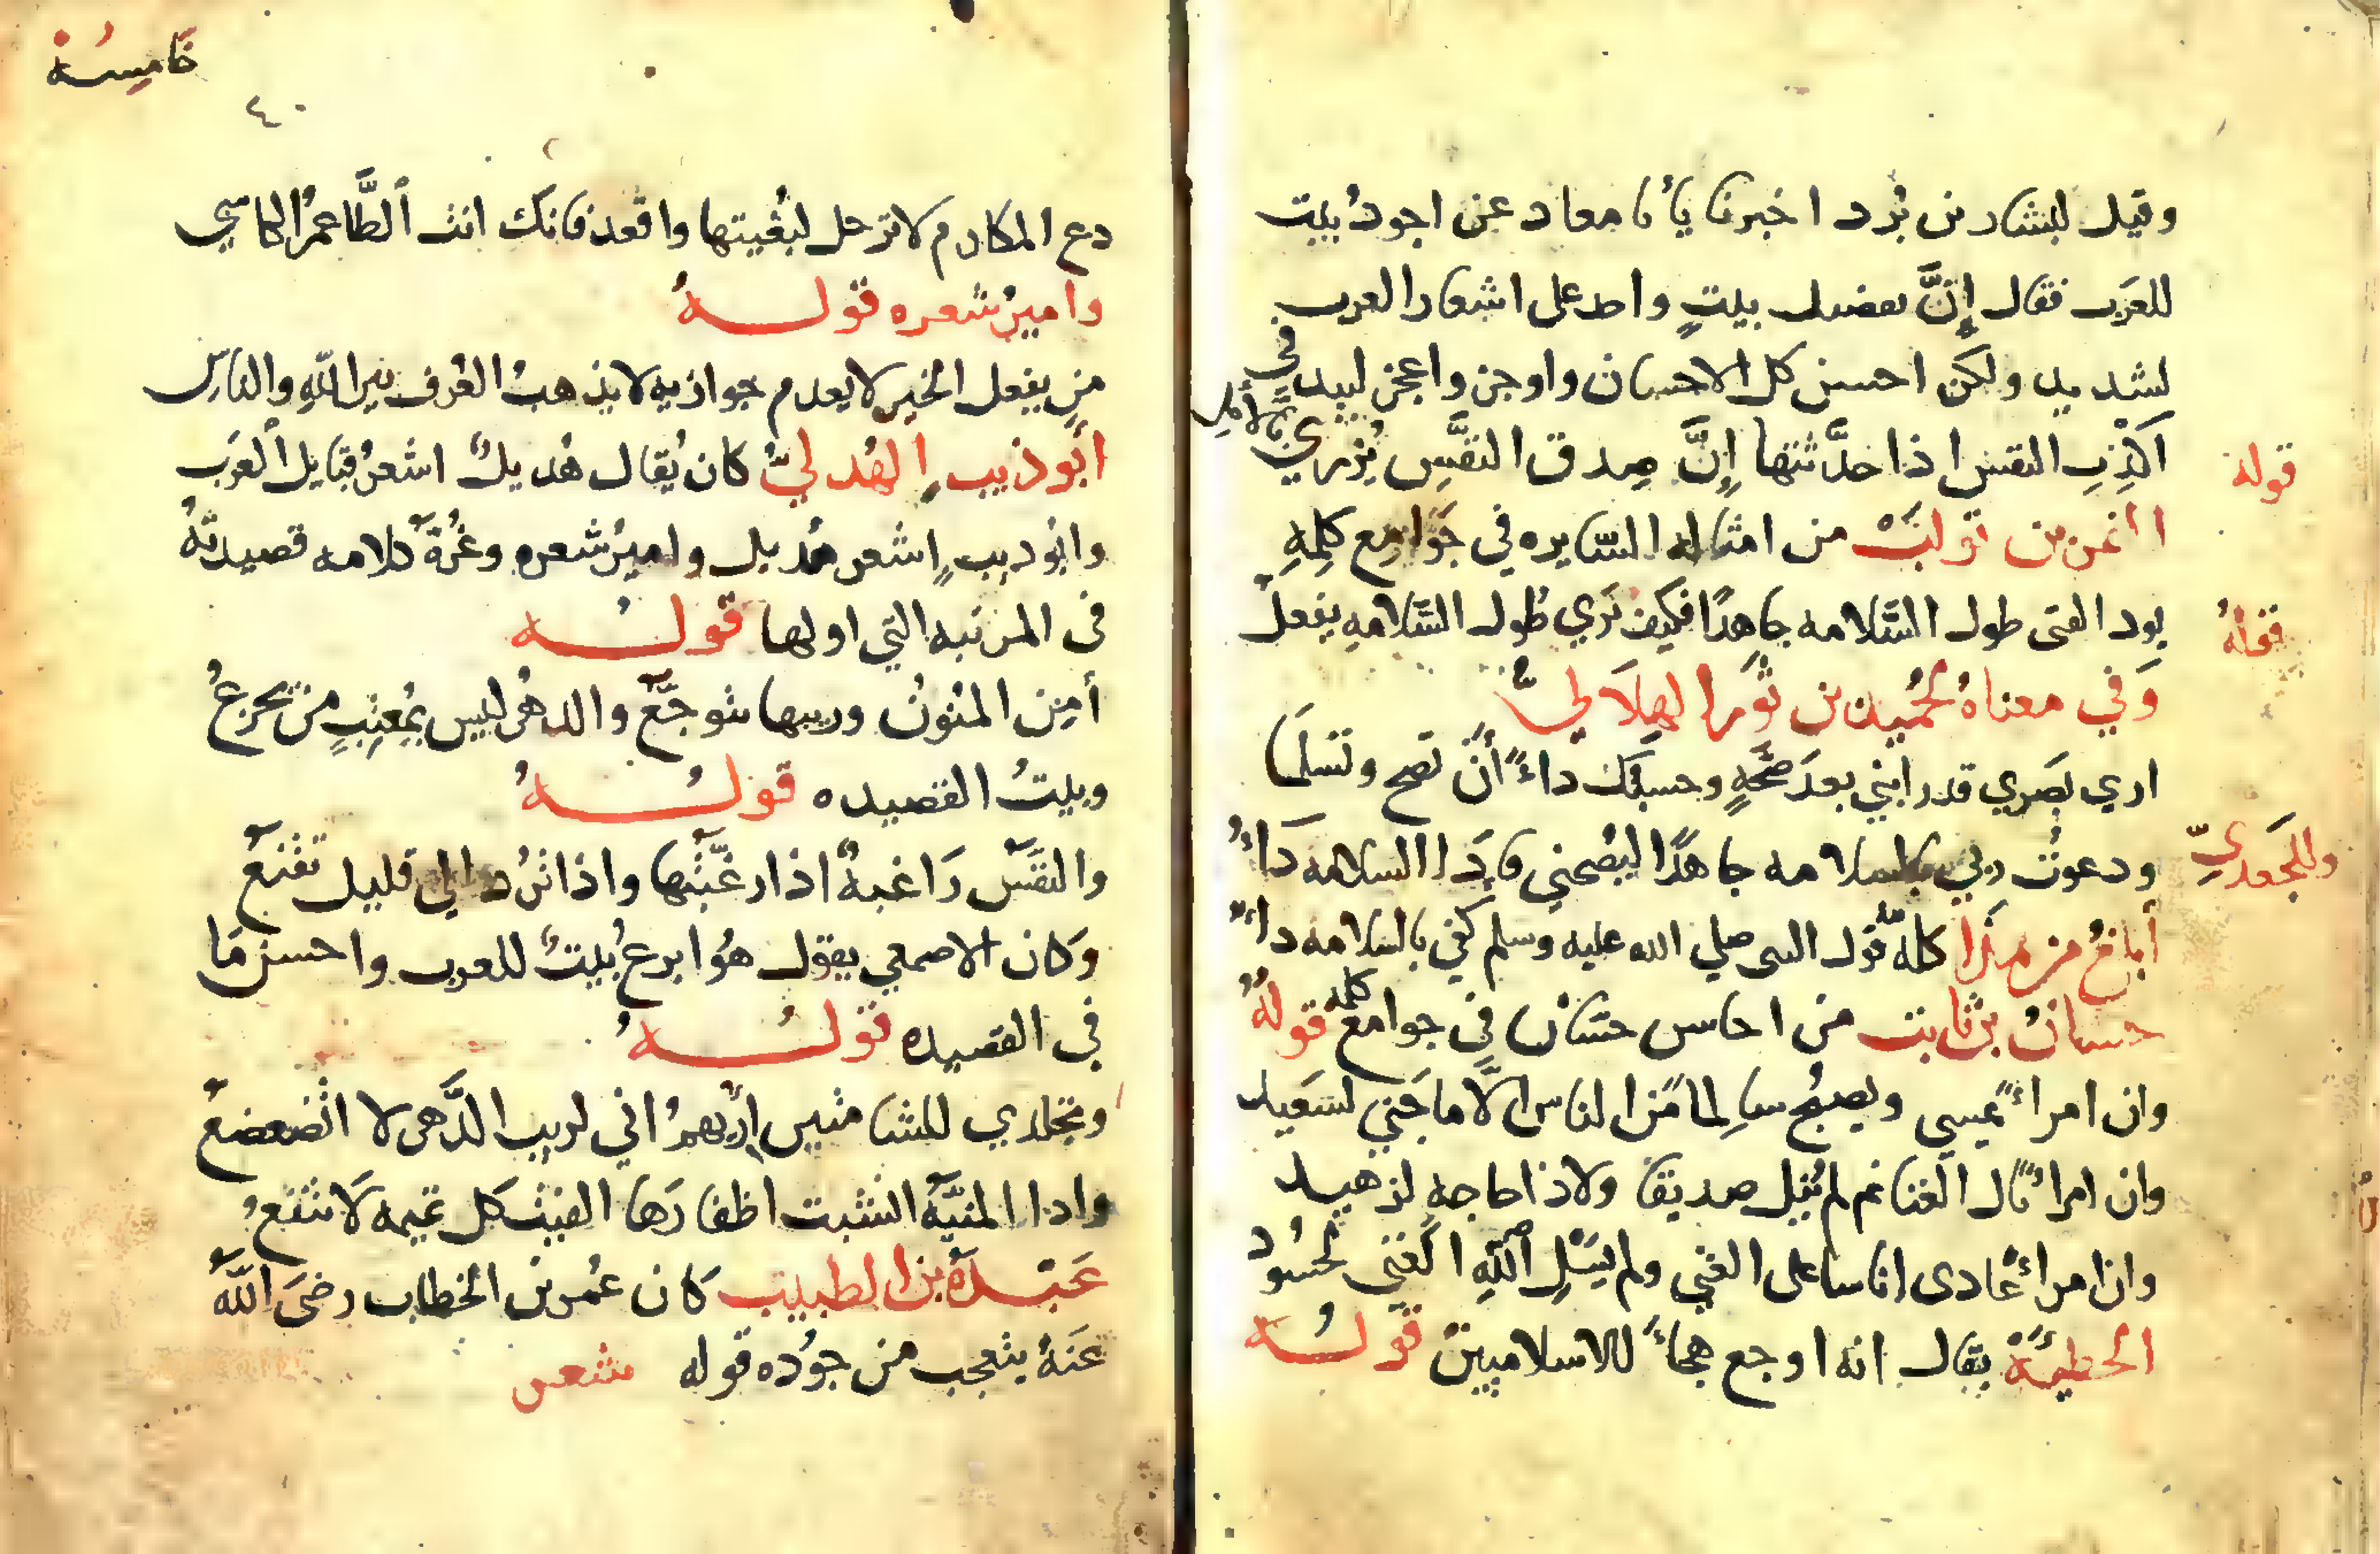 وقيل لبشار بن بُرد اخبرنا يأبا معاد عن اجود بيت
للعرب فقال إنَّ تفضيل بيتٍ واحد على اشعار العرب
لشديد ولكن احسن كل الاحسان واوجز واعجز لبيد في
قوله
اكذِبِ النفس اذا حدَّثتها إنَّ صِدق النفَّسِ يُزري بالأمل
النمر بن تولبْ من امثاله السّايره في جَوامِع كلِمِهِ
قوله
يود الفتى طول السَّلامه جاهدًا فكيف تَري طُول السَّلامهِ يفعلُ
وَفي معناهُ لحُميد بن ثَور الهِلَاليُّ
اري بصَري قد رابني بعدَ صِحَّهٍ وحسبُك داءً أنْ تصح وتسلما
وللجَعديِّ
ودعوتُ ربي بالسلامه جاهدًا ليُصحني فاذَا السلامه دَاءُ
أبلغُ من هذا كلّه قول النبي صلي الله عليه وسلم كفي بالسلامه داءً
حسان بن ثابت من احاسن حسّان في جوامع كلمه قولهُ
وان امراءً يُمسي ويصبحُ سالِماً مَن الناس الَّا ما جَني لسَعيد
وان امراءً نال الغنا ثم لم يُنِل صديقا ولا ذا حاجه لزهيد
وان امراءً عادى اناسا على الغني ولم يَسْلِ اللهَ الغني لحسُود
الحطيئة يقال انه اوجع هجاءً للاسلاميين قولُـــه
خَامِسَة
٤٠
دع المكارم لا ترحل لبُغيتها واقعد فانكَ انت الطَّاعمُ الكاسي
واميرُ شعره قولـــه
من يفعل الخير لا يعدم جوازيه لا يذهبُ العُرف بين اللهِ والناسِ
أبو ذيب الهُدليُّ كان يُقال هُديلٌ اشعرُ قبايل العَرب
وابُو ديب اشعر هُديل واميرُ شعره وغُرَّة كلامه قصيدتهُ
في المرتبه التي اولها قولُـــه
أمِن المنُونُ وريبها تتوجَّعُ والدهرُ ليس بمُعتِبٍ من يجزعُ
وبيتُ القصيده قولُـــهُ
والنفَّس رَاغبهٌ اذا رغبَّتها واذا تُردُ الي قليل تقنَعُ
وكان الاصمعي يقول هُو ابرعُ بيتٌ للعرب واحسن مَا
في القصيده قولُـــهُ
وتجلدي للشامتين اُرِيهمُ اني لريب الدَّهر لا اتضعضعُ
واذا المنيَّةُ انشبت اظفارَها الفيت كل تميمه لَا تنفعُ
عَبْـــدَةُ بن الطبيب كان عُمر بن الخطاب رضيَ اللَّهُ
عَنهُ يتعجب من جوُده قوله شعر